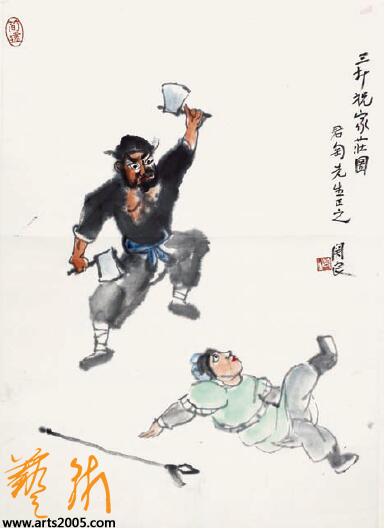 三打祝家莊圖
君匋先生正之
關良
藝術
www.arts2005.com